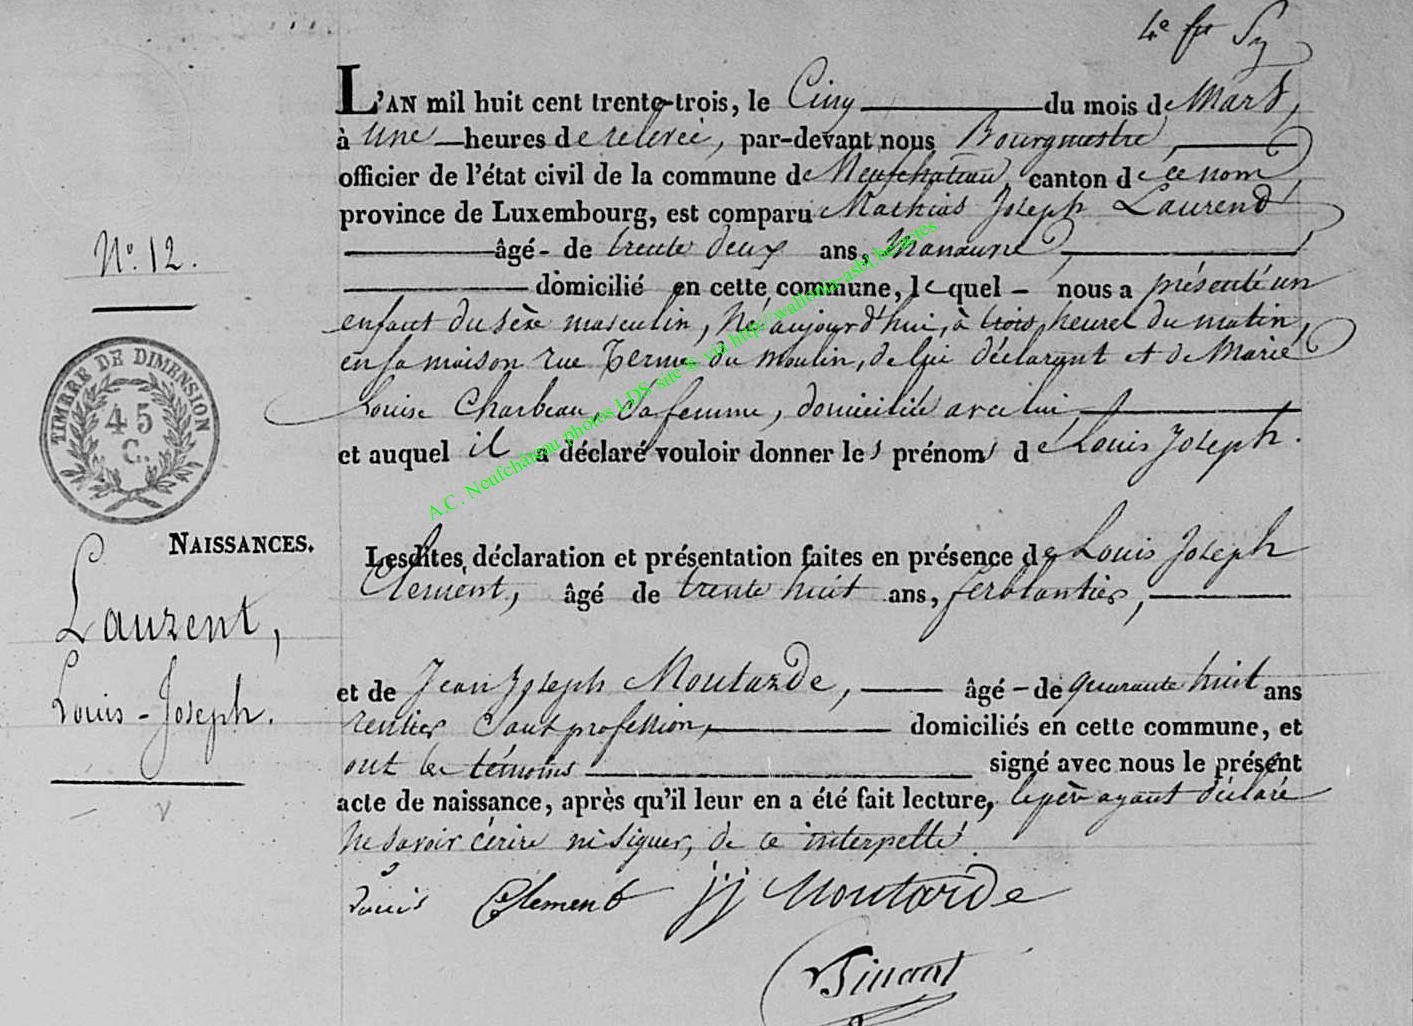 4e
L'AN mil huit cent trente-trois, le Cinq du mois de Mars,
à une heures de relevée, par-devant nous Bourgmestre,
officier de l'état civil de la commune de Neufchateau, canton de ce nom,
province de Luxembourg, est comparu Mathias Joseph Laurend
âgé - de trente deux ans, Manœuvre,
domicilié en cette commune, lequel - nous a présenté un
enfant du sèxe masculin, Né aujourd'hui, à trois heures du matin,
en sa maison rue Terme du moulin, de lui déclarant et de Marie
Louise Charbeau, Sa femme, domiciliée avec lui
et auquel il a déclaré vouloir donner les prénoms de Louis Joseph.
No. 12.
TIMBRE DE DIMENSION
45
C.
NAISSANCES.
Laurent,
Louis-Joseph.
Lesdites déclaration et présentation faites en présence de Louis Joseph
Clement, âgé de trente huit ans, ferblantier,
et de Jean Joseph Moutarde, âgé - de quarante huit ans
rentier Sans profession, domiciliés en cette commune, et
ont les témoins signé avec nous le présent
acte de naissance, après qu'il leur en a été fait lecture, le père ayant déclaré
Ne savoir écrire ni signer, de ce interpellé.
Louis Clement jj Moutarde
A.C. Neufchâteau photos LDS site & via http://wallonia-asbl.be/actes